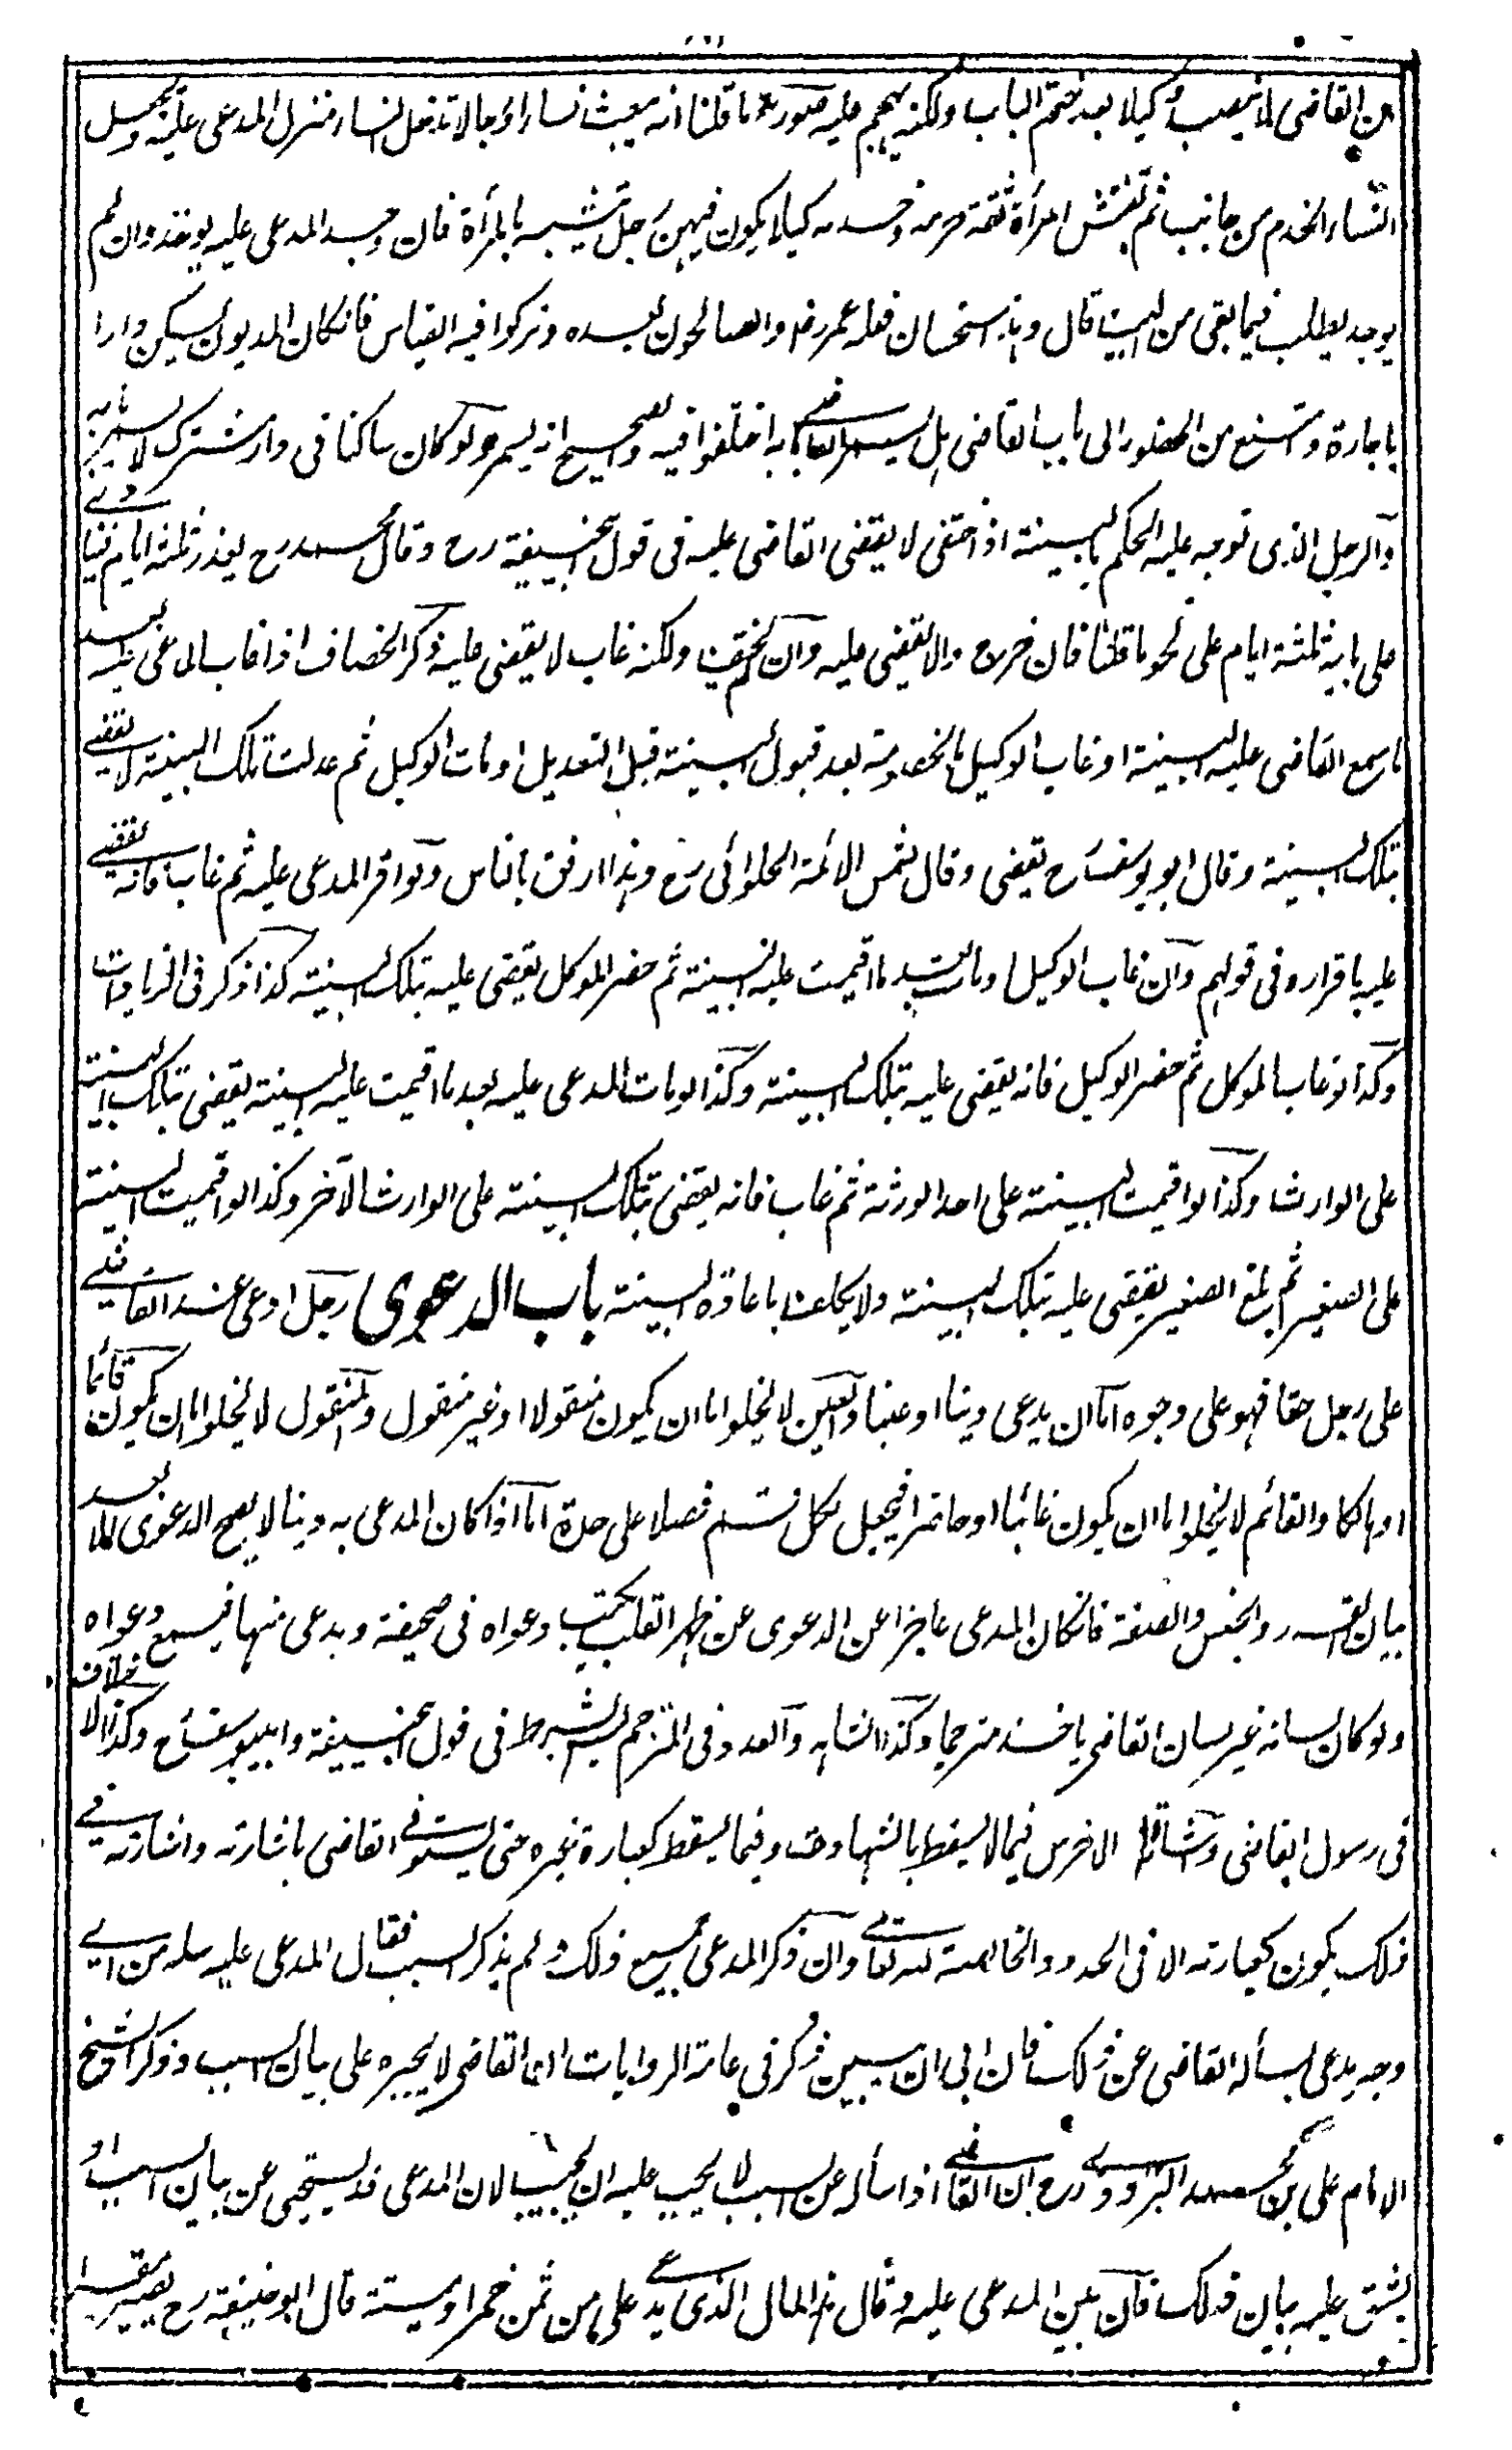 ان القاضى لا ينصب وكيلا بعد ختم الباب ولكنه يهجم عليه صورة ما قلنا انه يبعث نساء او رجالا تدخل النساء منزل المدعى عليه وتجعل
النساء الخدم من جانب ثم تفتش امرأة ثقة حرمه وخدمه كيلا يكون فيهن رجل تشبه بالمرأة فان وجد المدعى عليه يؤخذ وان لم
يوجد يطلب فيما بقى من البيت قال وهذا استحسان فعله عمر رض والصالحون بعده وتركوا فيه القياس فانكان المديون يسكن دارا
باجارة وامتنع من الحضور الى باب القاضى هل يسمر القاضى بابه اختلفوا فيه والصحيح انه يسمر ولو كان ساكنا فى دار مشترك لا يسمر بابه
والرجل الذى توجه عليه الحكم بالبينة اذا اختفى لا يقضى القاضى عليه فى قول ابيحنيفة رح وقال محمد رح يعذر ثلثة ايام فينادى
على بابه ثلثة ايام على نحو ما قلنا فان خرج والا يقضى عليه وان لم يختف ولكنه غاب لا يقضى عليه ذكر الخصاف اذا غاب المدعى عليه بعد
ما سمع القاضى عليه البينة او غاب الوكيل بالخصومة بعد قبول البينة قبل التعديل او مات الوكيل ثم عدلت تلك البينة لا يقضى
بتلك البينة وقال ابو يوسف رح يقضى وقال شمس الائمة الحلوائى رح وهذا ارفق بالناس ولو اقر المدعى عليه ثم غاب فانه يقضى
عليه باقراره فى قولهم وان غاب الوكيل او مات بعد ما اقيمت عليه البينة ثم حضر الموكل يقضى عليه بتلك البينة كذا ذكر فى الزيادات
وكذا لو غاب الموكل ثم حضر الوكيل فانه يقضى عليه بتلك البينة وكذا لو مات المدعى عليه بعد ما اقيمت عليه البينة يقضى بتلك البينة
على الوارث وكذا لو اقيمت البينة على احد الورثة ثم غاب فانه يقضى بتلك البينة على الوارث الآخر وكذا لو اقيمت البينة
على الصغير ثم بلغ الصغير يقضى عليه بتلك البينة ولا يكلف باعادة البينة باب الدعوى رجل ادعى عند القاضى
على رجل حقا فهو على وجوه اما ان يدعى دينا او عينا والعين لا يخلو اما ان يكون منقولا او غير منقول والمنقول لا يخلو اما ان يكون قائما
او هالكا والقائم لا يخلو اما ان يكون غائبا او حاضرا فيجعل لكل قسم فصلا على حدة اما اذا كان المدعى به دينا لا يصح الدعوى الا بعد
بيان القدر والجنس والصفة فانكان المدعى عاجزا عن الدعوى عن ظهر القلب يكتب دعواه فى صحيفة ويدعى منها فيسمع دعواه
ولو كان لسانه غير لسان القاضى ياخذ مترجما وكذا الشاهد والعدد فى المترجم ليس بشرط فى قول ابيحنيفة وابييوسف رح وكذا الخلاف
فى رسول القاضى واشارة الاخرس فيما لا يسقط بالشبهات وفيما يسقط كعبارة غيره حتى يستوفى القاضى باشارته واشارته فى
ذلك يكون كعبارته الا فى الحدود الخالصة لله تعالى وان ذكر المدعى جميع ذلك ولم يذكر السبب فقال المدعى عليه سله من اى
وجه يدعى يسأله القاضى عن ذلك فان ابى ان يبين ذكر فى عامة الروايات ان القاضى لا يجبره على بيان السبب وذكر الشيخ
الامام على بن محمد البزدوى رح ان القاضى اذا سأله عن السبب لا يجب عليه ان يجيب لان المدعى قد يستحيى عن بيان السبب او
يشق عليه بيان ذلك فان بين المدعى عليه وقال هذا المال الذى يدعى على من ثمن خمر او ميتة قال ابو حنيفة رح يصير مقرا